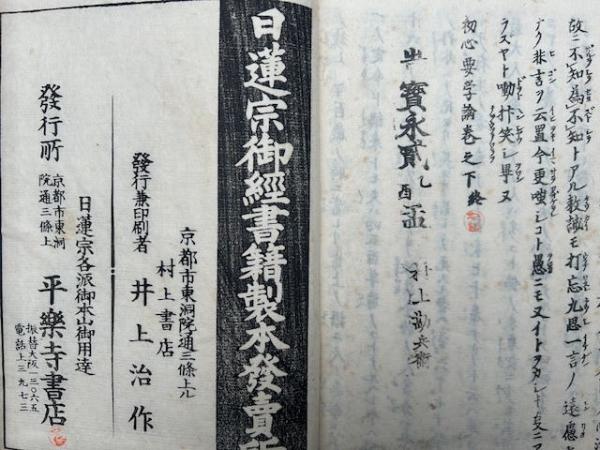 故ニ不知為不知トアル教誡モ打忘九思一言ノ遠慮
ナク非言ヲ云置今更嗤シコト愚ニモ又イトヲカシ
ラスヤト嘲拝笑シ畢ヌ
初心要学論巻之下終
寶永貳乙酉
村上勘兵衛
日蓮宗御經書籍製本發賣所
京都市東洞院通三條上ル
村上書店
發行兼印刷者 井上治作
日蓮宗各派御本山御用達
發行所 京都市東洞院通三條上 平樂寺書店
振替大阪一三〇六五
電話上三九七三